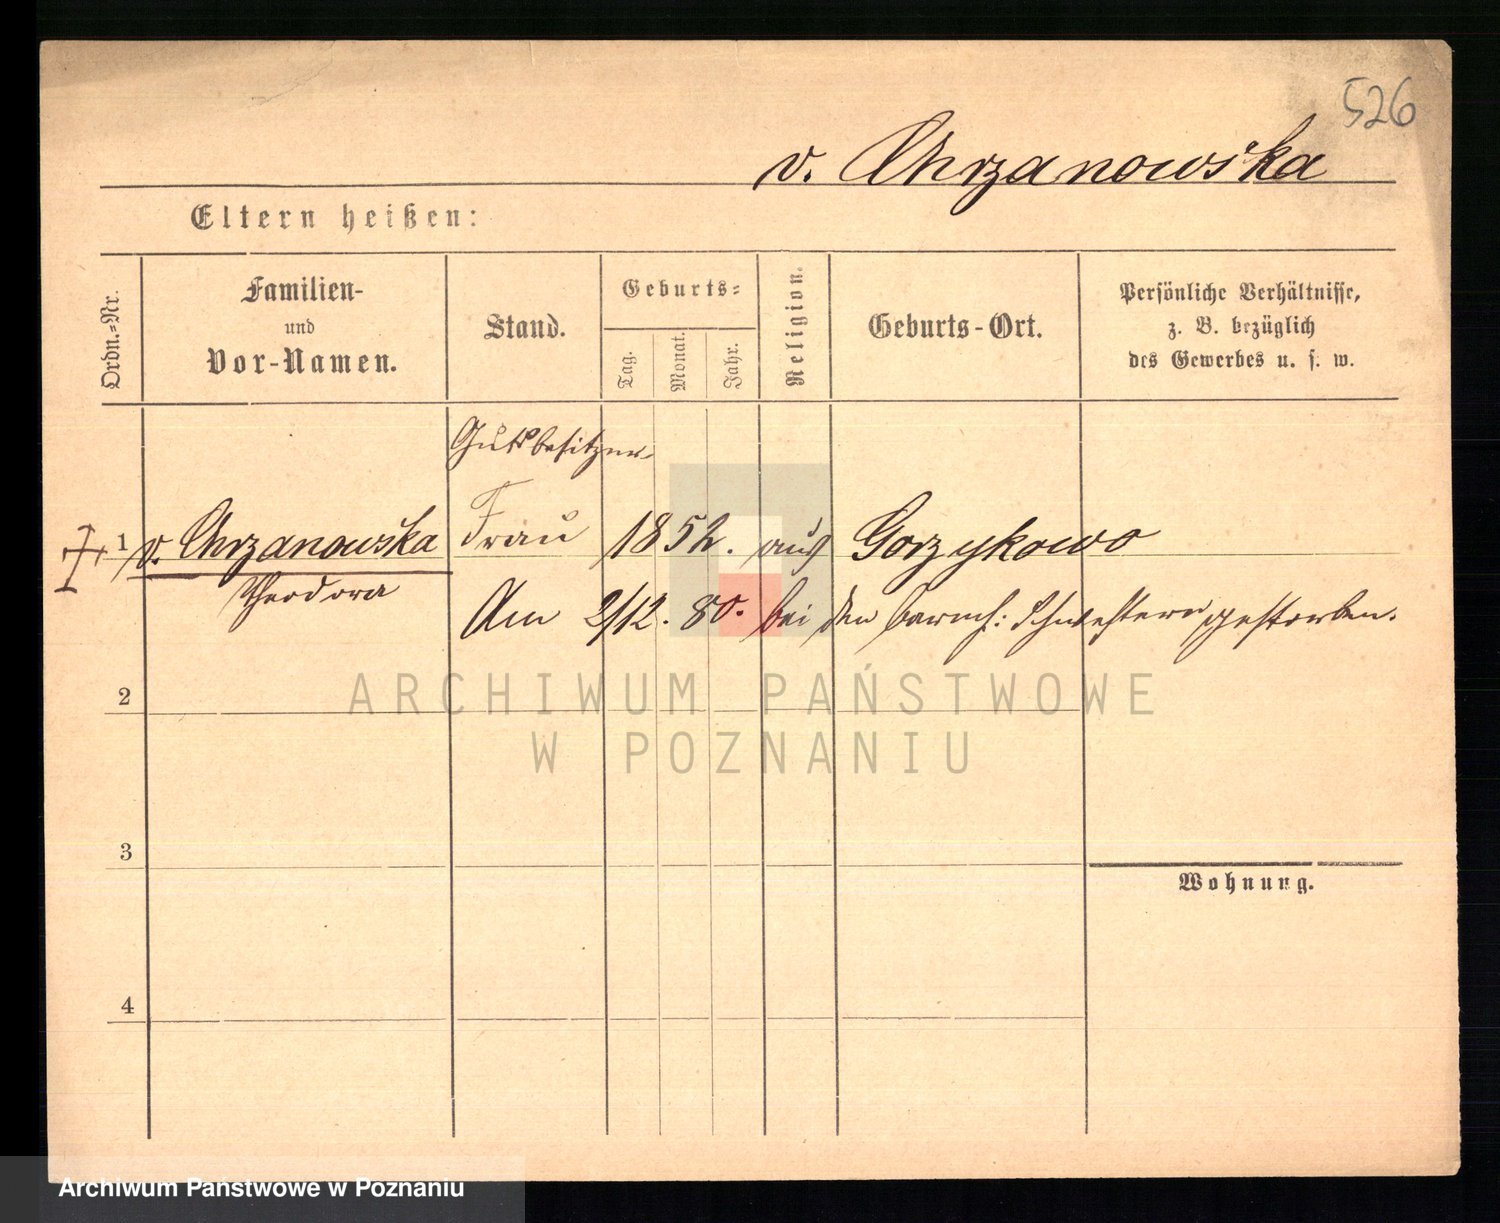 526
v. Chrzanowska
Eltern heißen:
Ordn.-Nr.
Familien-
und
Vor-Namen.
Stand.
Geburts-
Tag.
Monat.
Jahr.
Religion.
Geburts-Ort.
Persönliche Verhältnisse,
z. B. bezüglich
des Gewerbes u. s. w.
Gutsbesitzer-
1 v. Chrzanowska Frau 1852. aus Gorzykowo
Theodora
Am 2/12. 80. bei den barmh: Schwestern gestorben.
ARCHIWUM PAŃSTWOWE
W POZNANIU
2
3
Wohnung.
4
Archiwum Państwowe w Poznaniu